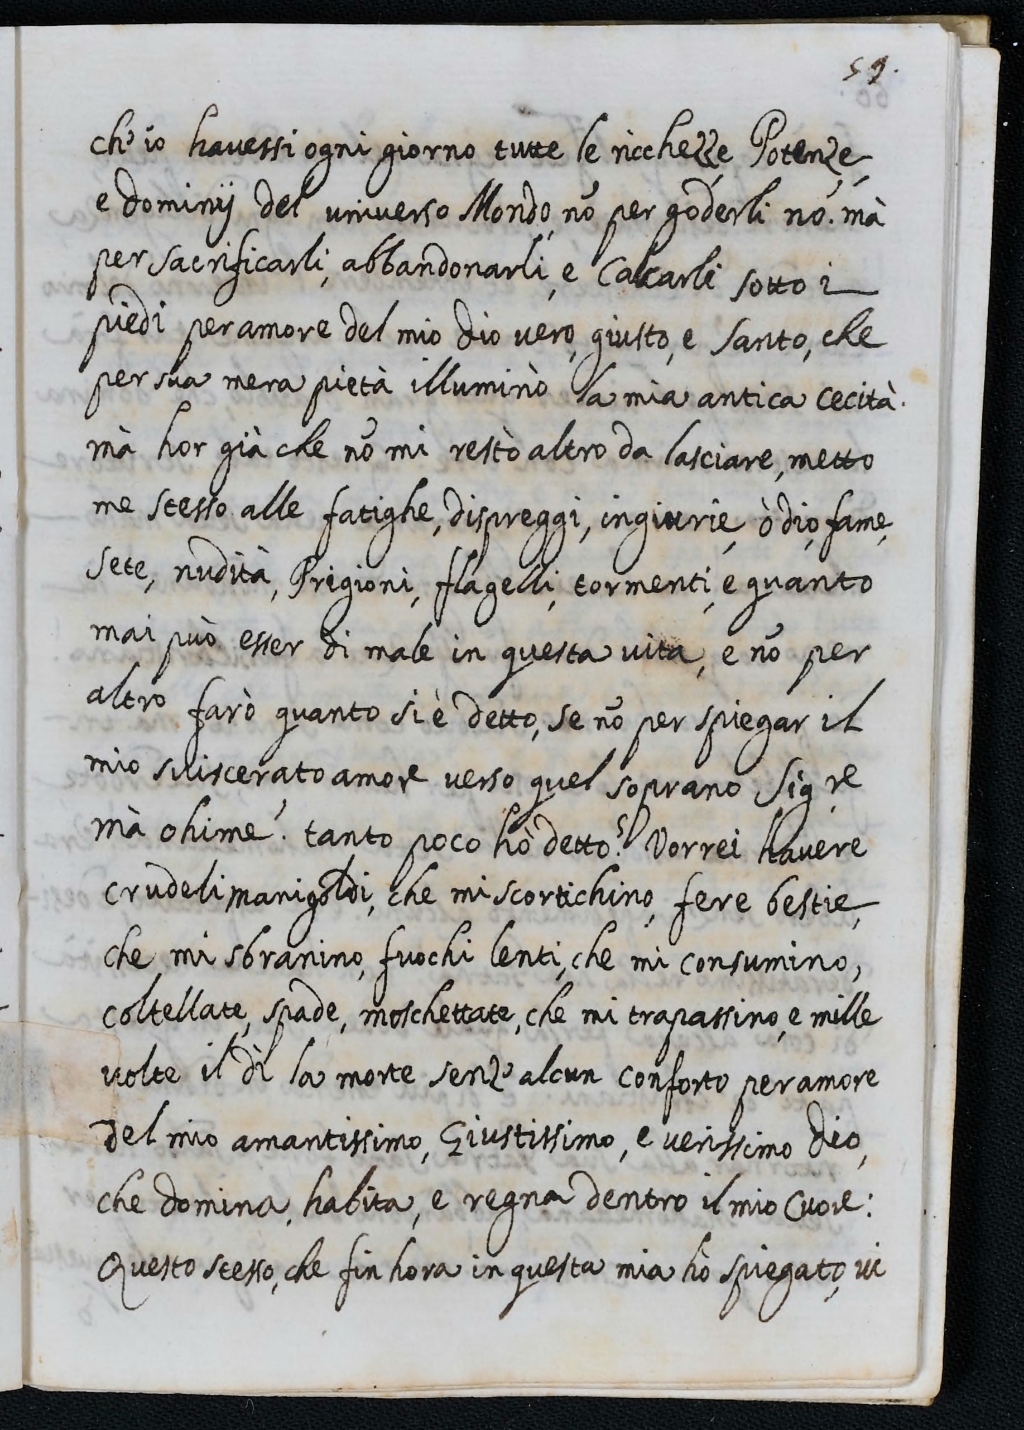 59.
ch'io havessi ogni giorno tutte le ricchezze, Potenze,
e dominij del universo Mondo, nõ per goderli nó. mà
per sacrificarli, abbandonarli, e Calcarli sotto i
piedi per amore del mio Dio vero, giusto, e Santo, che
per sua mera pietà illuminò la mia antica cecità.
mà hor già che nõ mi restò altro da lasciare, metto
me stesso alle fatighe, dispreggi, ingiurie, òdio, fame,
sete, nudità, Prigioni, flagelli, tormenti, e quanto
mai può esser di male in questa vita, e nõ per
altro farò quanto si è detto, se nõ per spiegar il
mio sviscerato amore verso quel soprano Sig.re
mà ohime! tanto poco hò detto? Vorrei havere
crudeli manigoldi, che mi scortichino, fere bestie,
che mi sbranino, fuochi lenti, che mi consumino,
coltellate, spade, moschettate, che mi trapassino, e mille
volte il dì la morte senz'alcun conforto per amore
del mio amantissimo, Giustissimo, e verissimo Dio,
che domina, habita, e regna dentro il mio Cuore:
Questo stesso, che fin hora in questa mia hò spiegato, vi